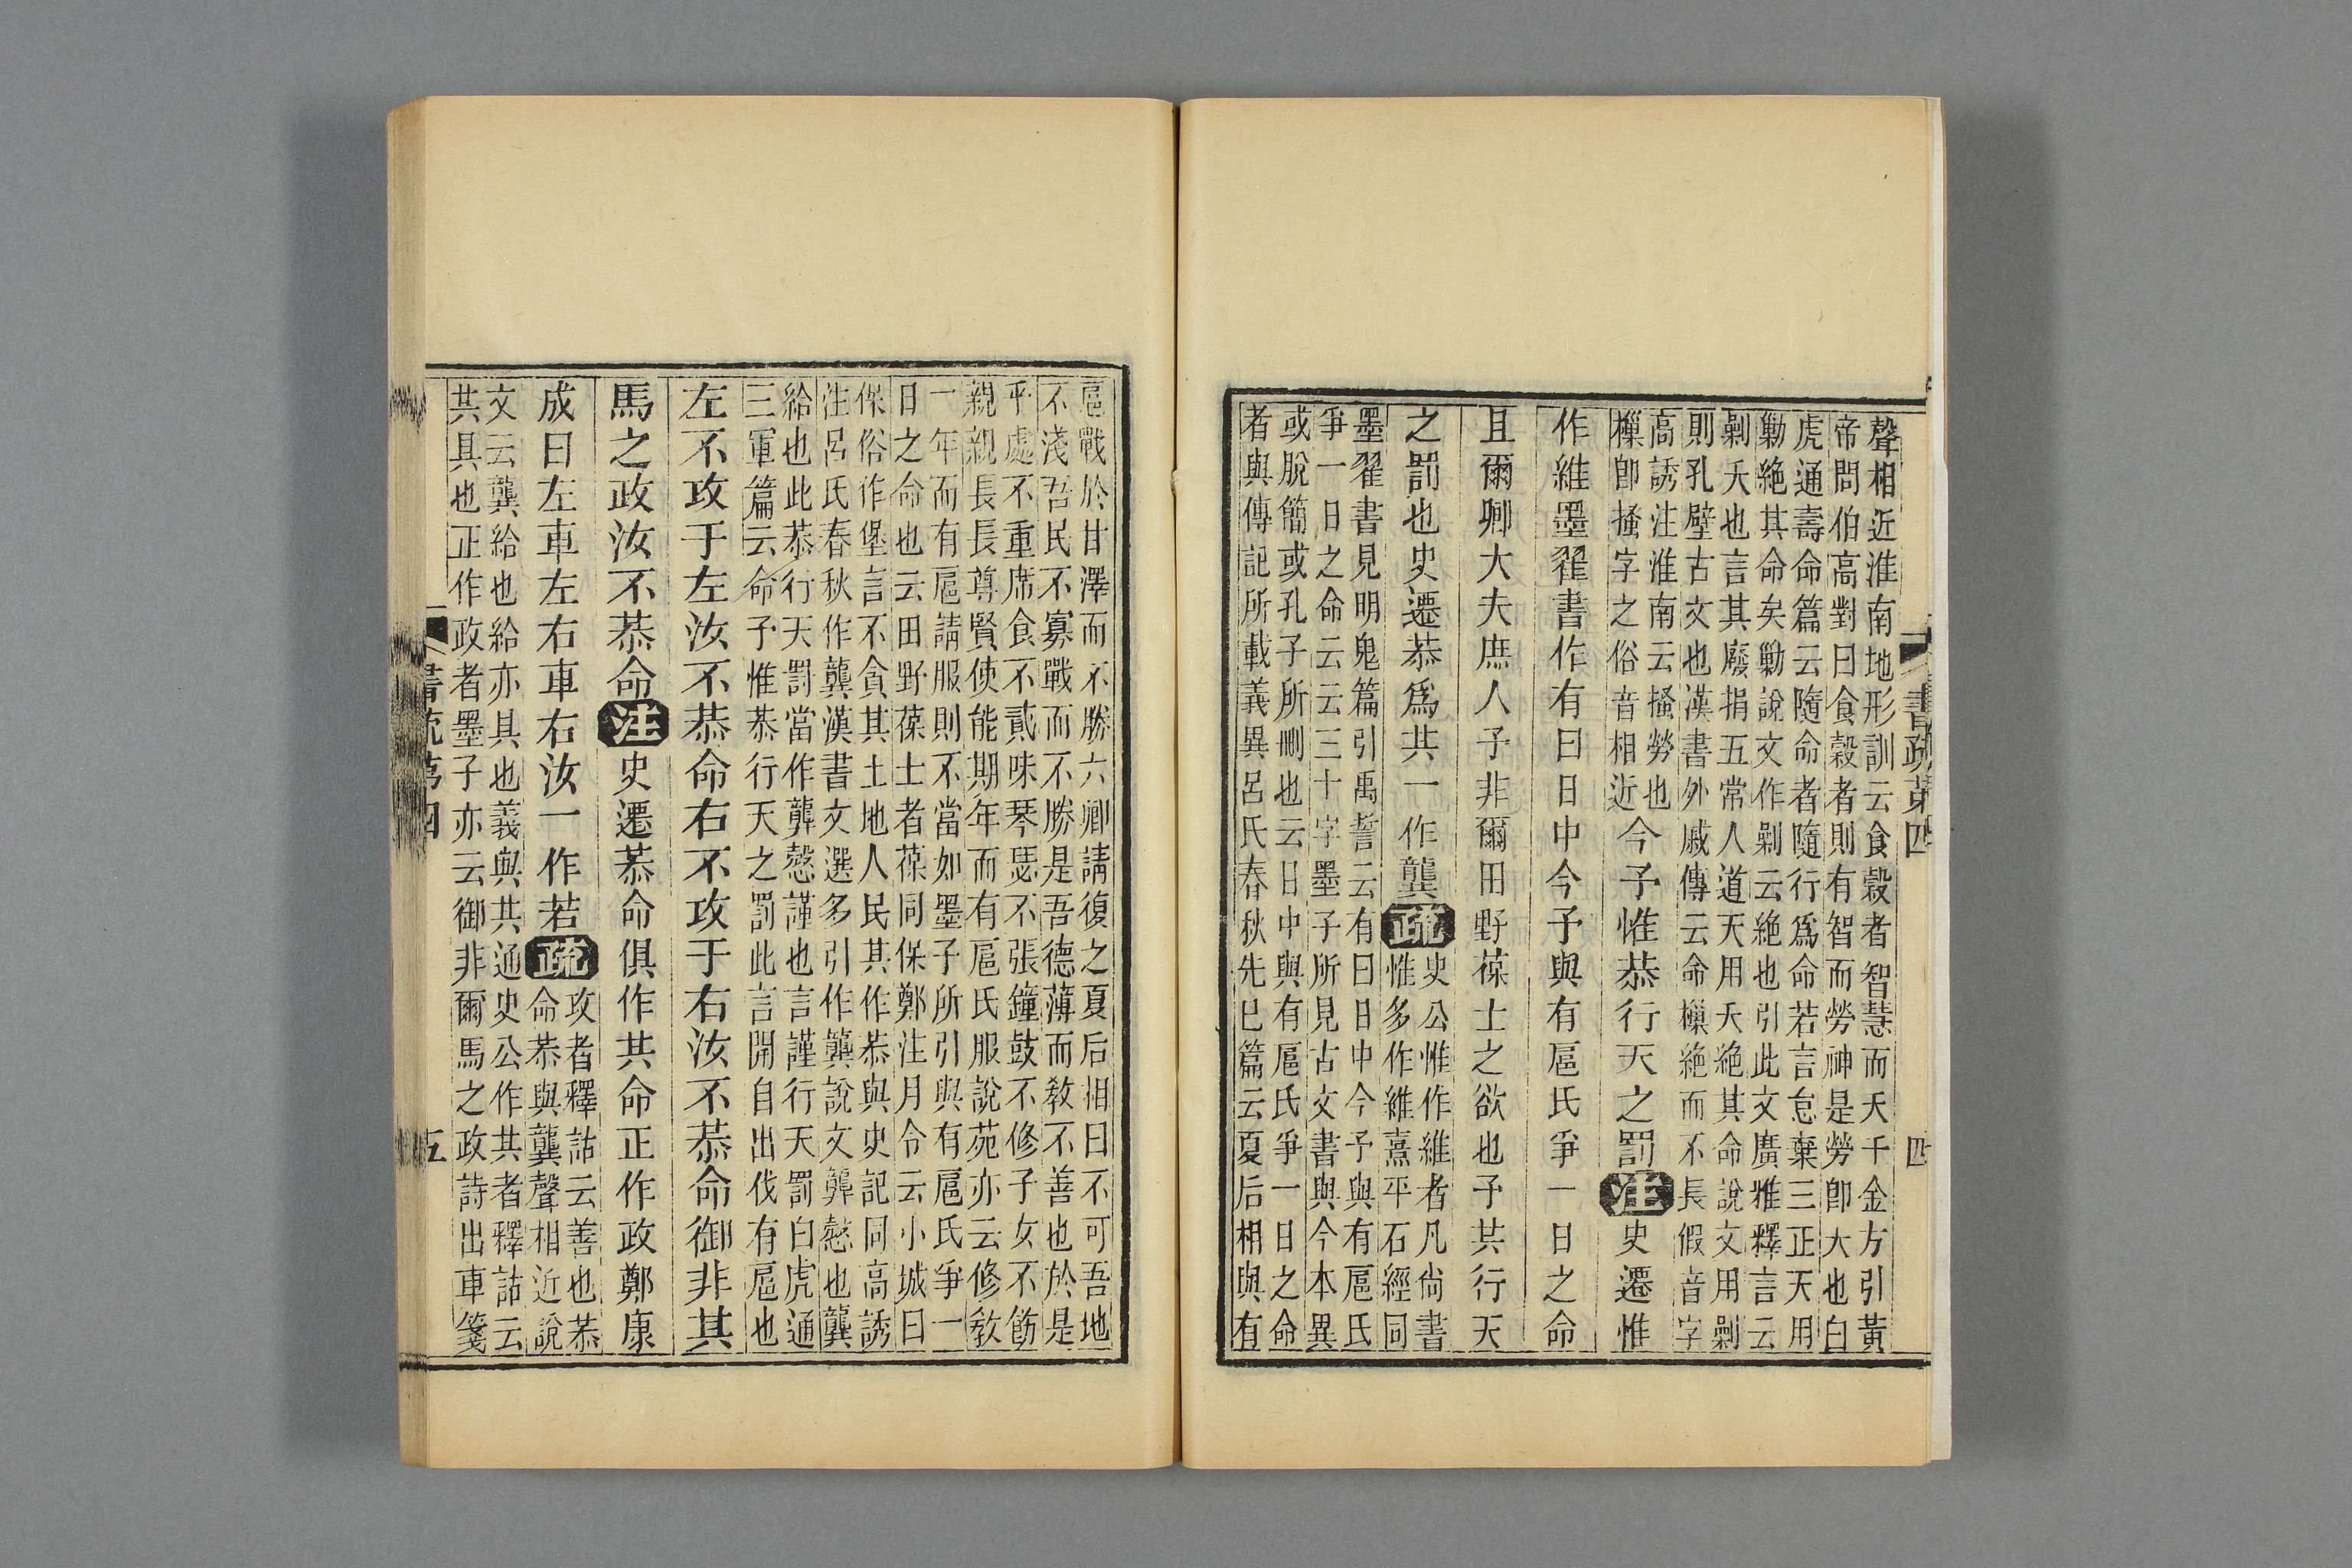 書疏苐四
四
聲相近淮南地形訓云食穀者智慧而夭千金方引黃
帝問伯高對曰食穀者則有智而勞神是勞卽大也白
虎通壽命篇云隨命者隨行爲命若言怠棄三正天用
勦絕其命矣勦說文作剿云絕也引此文廣雅釋言云
剿夭也言其廢捐五常人道天用夭絕其命說文用剿
則孔壁古文也漢書外戚傳云命樔絕而不長假音字
高誘注淮南云搔勞也
樔卽搔字之俗音相近
今予惟恭行天之罰注史遷惟
作維墨翟書作有曰日中今予與有扈氏爭一日之命
且爾卿大夫庶人予非爾田野葆士之欲也予共行天
之罰也史遷恭爲共一作龔疏
史公惟作維者凡尙書
惟多作維熹平石經同
墨翟書見明鬼篇引禹誓云有曰日中今予與有扈氏
爭一日之命云云三十字墨子所見古文書與今本異
或脫簡或孔子所刪也云日中與有扈氏爭一日之命
者與傳記所載義異呂氏春秋先已篇云夏后相與有
扈戰於甘澤而不勝六卿請復之夏后相曰不可吾地
不淺吾民不寡戰而不勝是吾德薄而敎不善也於是
乎處不重席食不貳味琴瑟不張鐘鼓不修子女不飭
親親長長尊賢使能期年而有扈氏服說苑亦云修敎
一年而有扈請服則不當如墨子所引與有扈氏爭一
日之命也云田野葆士者葆同保鄭注月令云小城曰
保俗作堡言不貪其土地人民其作恭與史記同高誘
注呂氏春秋作龔漢書文選多引作龔說文龏愨也龔
給也此恭行天罰當作龏愨謹也言謹行天罰白虎通
三軍篇云命予惟恭行天之罰此言開自出伐有扈也
左不攻于左汝不恭命右不攻于右汝不恭命御非其
馬之政汝不恭命注史遷恭命俱作共命正作政鄭康
成曰左車左右車右汝一作若疏
攻者釋詁云善也恭
命恭與龔聲相近說
文云龔給也給亦具也義與共通史公作共者釋詁云
共具也正作政者墨子亦云御非爾馬之政詩出車箋
書疏苐四
五